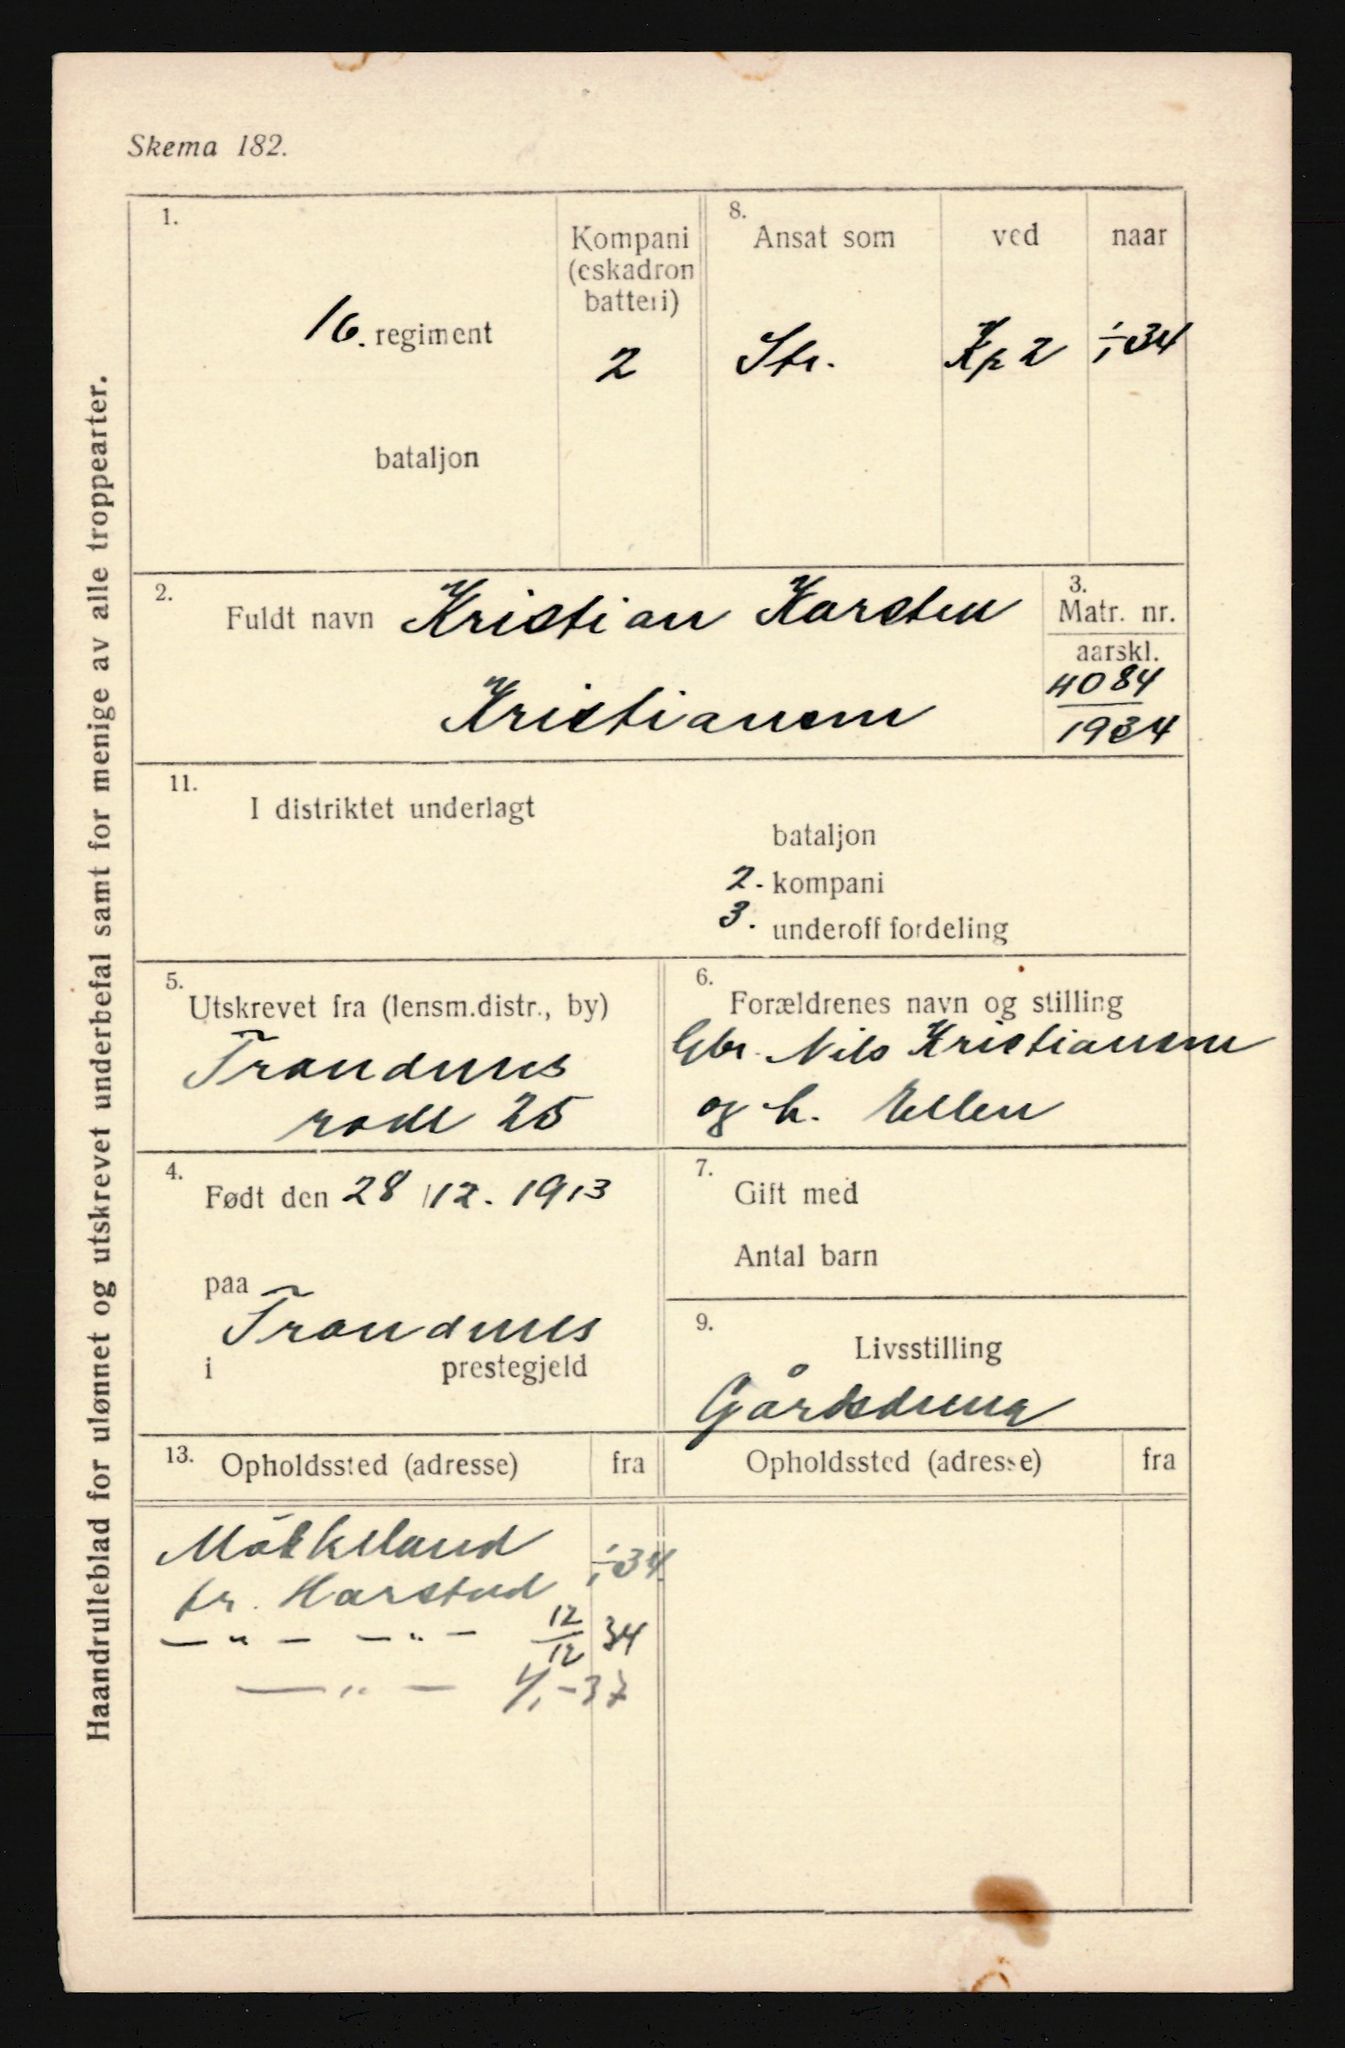 Skema 182.
Haandrulleblad for ulønnet og utskrevet underbefal samt for menige av alle troppearter.
1.
16. regiment
bataljon
Kompani
(eskadron
batteri)
2
8.
Ansat som
ved
naar
Str.
Kp 2
1/1 34
2.
Fuldt navn Kristian Karsten
Kristiansen
3.
Matr. nr.
aarskl.
4084
1934
11.
I distriktet underlagt
bataljon
2. kompani
3. underoff fordeling
5.
Utskrevet fra (lensm.distr., by)
Trondenes
rode 25
6.
Forældrenes navn og stilling
Gbr. Nils Kristiansen
og h. Ellen
4.
Født den 28/12. 1913
paa
Trondenes
i prestegjeld
7.
Gift med
Antal barn
9.
Livsstilling
Gårdsdreng
13. Opholdssted (adresse) fra
Opholdssted (adresse) fra
Møkkeland
pr. Harstad 1/1 34
— " — — " — 12/12 34
— " — 1/1-37